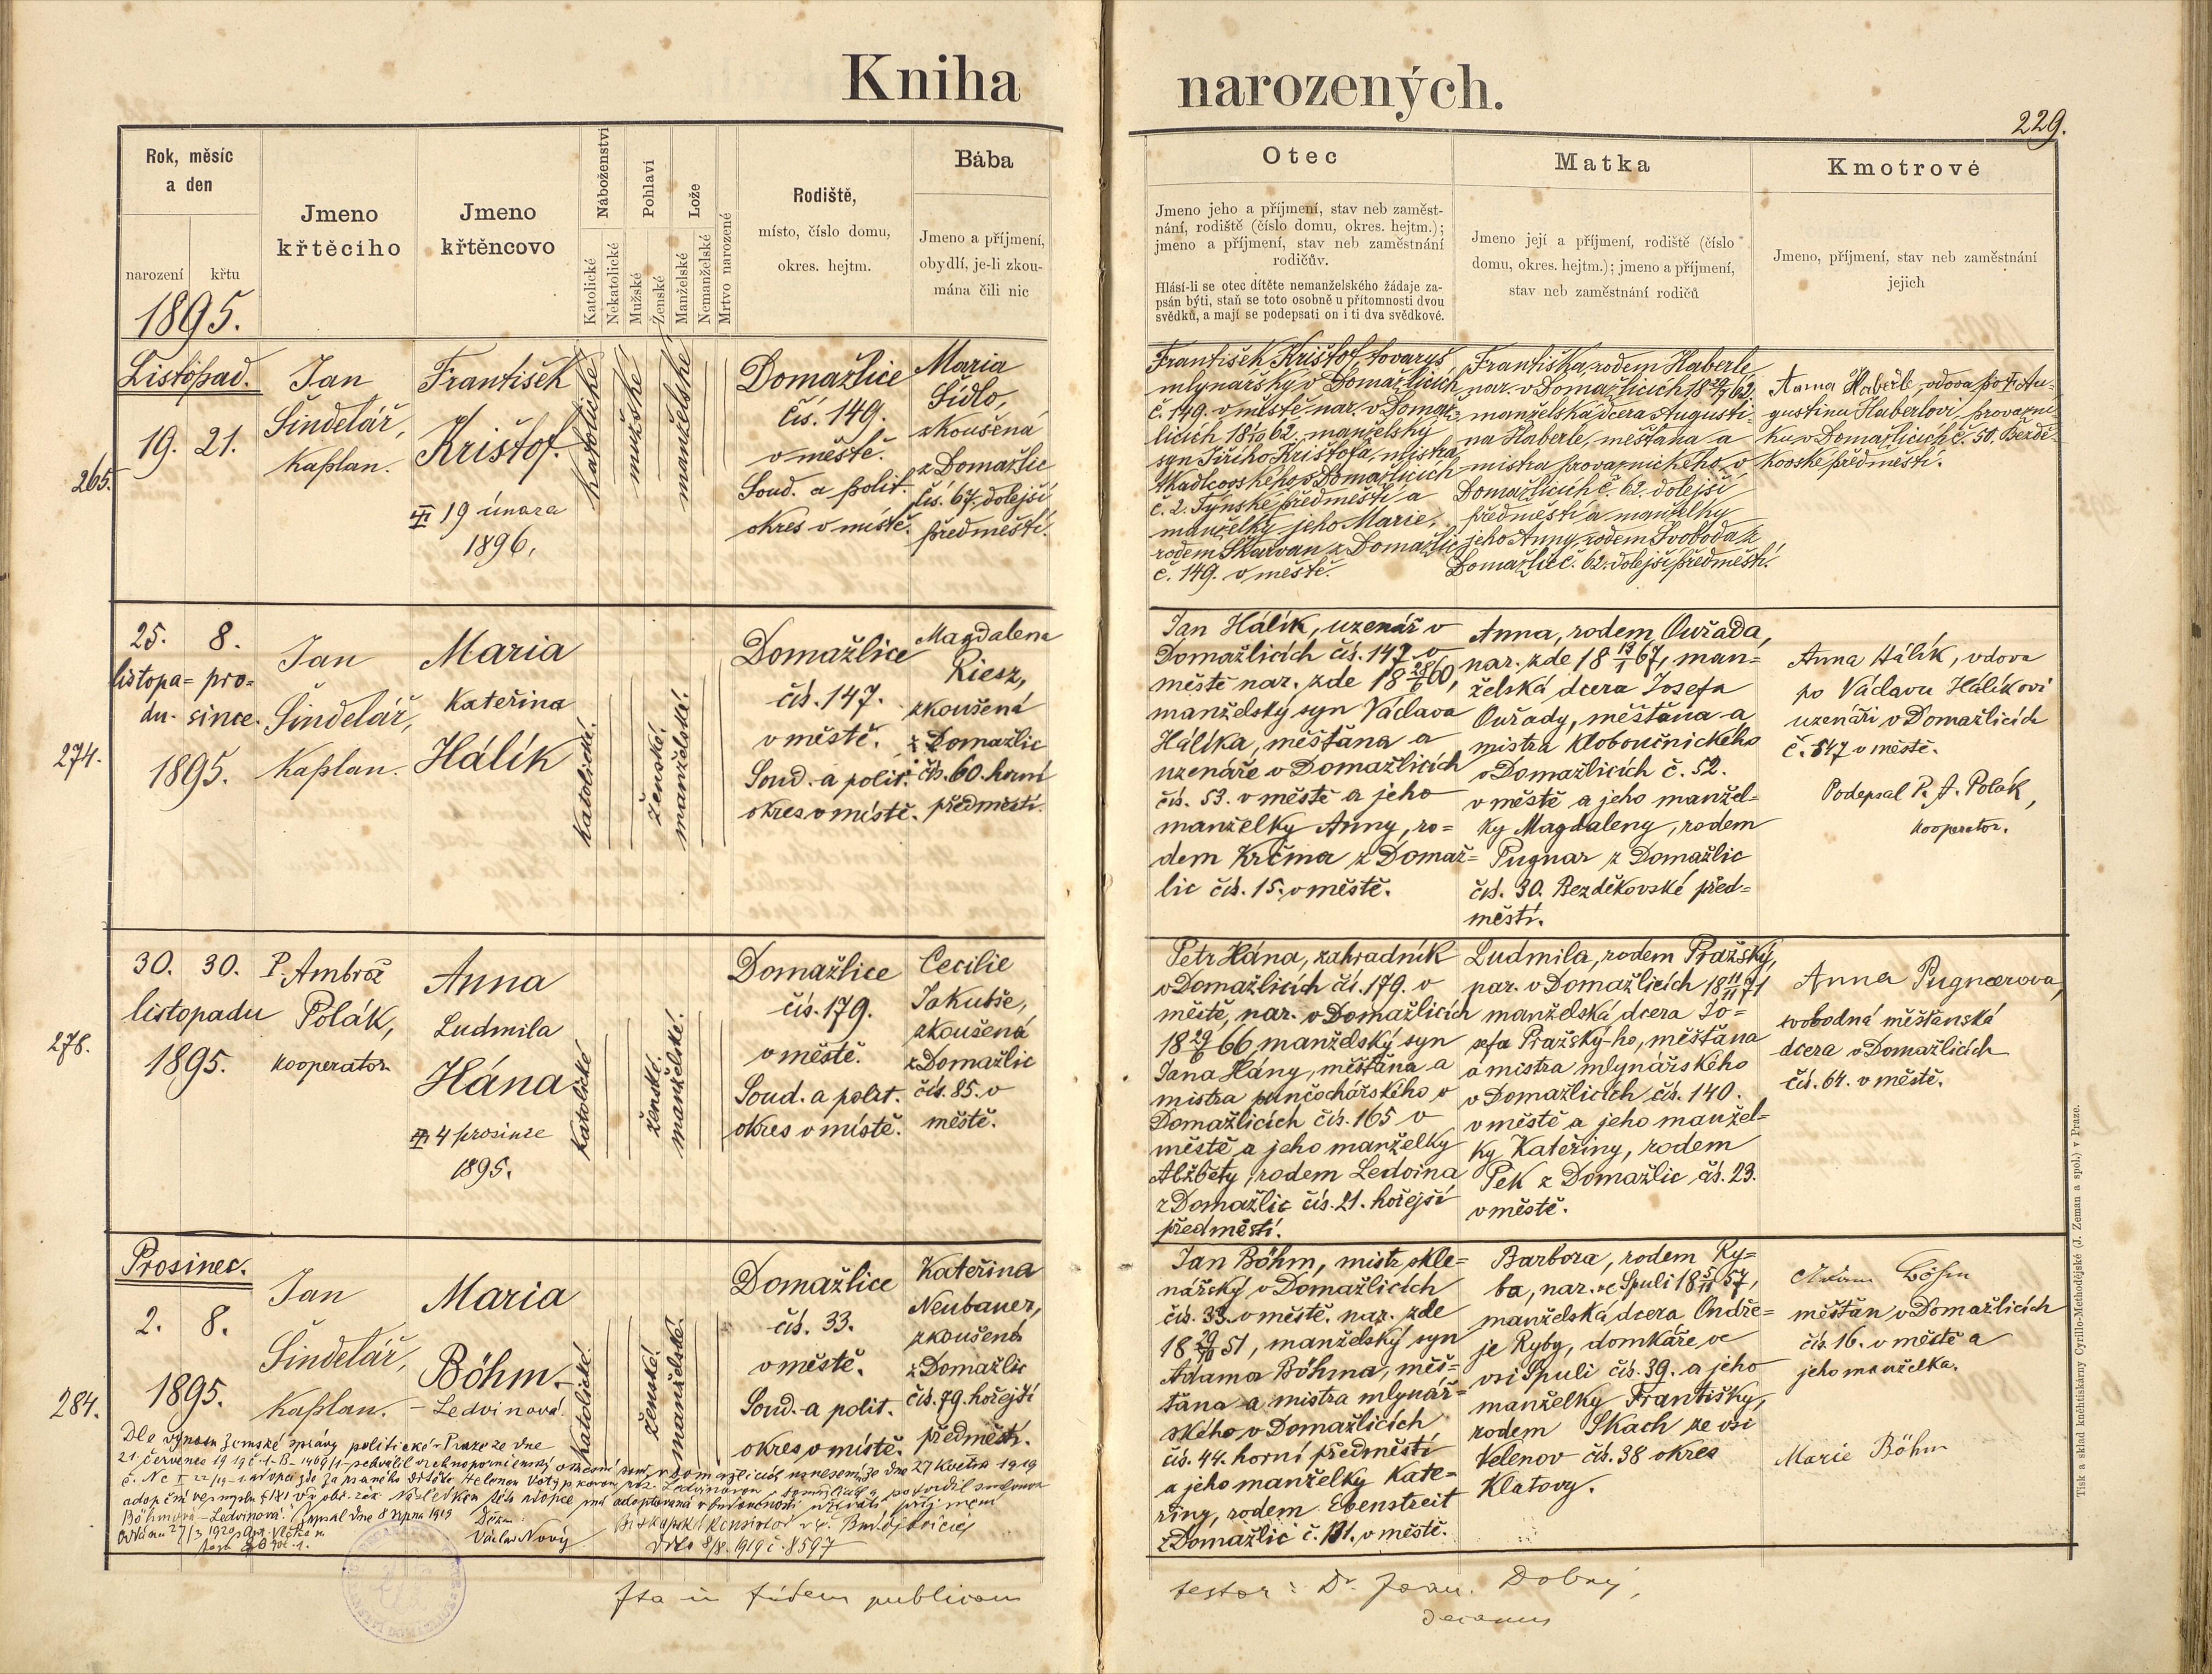 Kniha
narozených.
229.
Rok, měsíc
a den
narození
křtu
1895.
Jmeno
křtěcího
Jmeno
křtěncovo
Náboženství
Katolické
Nekatolické
Pohlaví
Mužské
Ženské
Lože
Manželské
Nemanželské
Mrtvo narozené
Rodiště,
místo, číslo domu,
okres. hejtm.
Bába
Jmeno a příjmení,
obydlí, je-li zkou-
mána čili nic
Otec
Jmeno jeho a příjmení, stav neb zaměst-
nání, rodiště (číslo domu, okres. hejtm.);
jmeno a příjmení, stav neb zaměstnání
rodičův.
Hlásí-li se otec dítěte nemanželského žádaje za-
psán býti, staň se toto osobně u přítomnosti dvou
svědků, a mají se podepsati on i ti dva svědkové.
Matka
Jmeno její a příjmení, rodiště (číslo
domu, okres. hejtm.); jmeno a příjmení,
stav neb zaměstnání rodičů
Kmotrové
Jmeno, příjmení, stav neb zaměstnání
jejich
265.
Listopad.
19. 21.
Jan
Šindelář,
kaplan.
František
Krištof.
19 února
1896.
katolické
mužské
manželské
Domažlice
čís. 149.
v městě.
Soud. a polit.
okres v místě.
Maria
Sídlo,
zkoušená
z Domažlic
čís. 67. dolejší
předměstí.
František Krištof, tovaryš
mlynářský v Domažlicích
č. 149. v městě nar. v Domaž-
licích 18 62. manželský
syn Jiřího Krištofa, mistra
tkadlcovského v Domažlicích
č. 2. Týnské předměstí a
manželky jeho Marie,
rodem Skarvan z Domažlic
č. 149. v městě.
Františka, rodem Haberle,
nar. v Domažlicích 18 62.
manželská dcera Augusti-
na Haberle, měšťana a
mistra provaznického v
Domažlicích č. 62. dolejší
předměstí a manželky
jeho Anny, rodem Svoboda z
Domažlic č. 62. dolejší předměstí.
Anna Haberle, vdova po Au-
gustinu Haberlovi provazní-
ku v Domažlicích č. 50. Bezdě-
kovské předměstí.
274.
25. 8.
listopa- pro-
du. since.
1895.
Jan
Šindelář,
kaplan.
Maria
Kateřina
Hálík
katolické.
ženské.
manželské.
Domažlice
čís. 147.
v městě.
Soud. a polit.
okres v místě.
Magdalena
Riesz,
zkoušená
z Domažlic
čís. 60. horní
předměstí.
Jan Hálík, uzenář v
Domažlicích čís. 147 v
městě nar. zde 18 28/6 60,
manželský syn Václava
Hálíka, měšťana a
uzenáře v Domažlicích
čís. 53. v městě a jeho
manželky Anny, ro-
dem Krčma z Domaž-
lic čís. 15. v městě.
Anna, rodem Ouřada,
nar. zde 18 13/1 67, man-
želská dcera Josefa
Ouřady, měšťana a
mistra kloboučnického
v Domažlicích č. 52.
v městě a jeho manžel-
ky Magdaleny, rodem
Pugnar z Domažlic
čís. 30. Bezděkovské před-
městí.
Anna Hálík, vdova
po Václavu Hálíkovi
uzenáři v Domažlicích
č. 147 v městě.
Podepsal P. A. Polák,
kooperator.
278.
30. 30.
listopadu
1895.
P. Ambrož
Polák,
kooperator
Anna
Ludmila
Hána
4 prosince
1895.
katolické
ženské.
manželské.
Domažlice
čís. 179.
v městě.
Soud. a polit.
okres v místě.
Cecilie
Jakubše,
zkoušená
z Domažlic
čís. 85. v
městě.
Petr Hána, zahradník
v Domažlicích čís. 179. v
městě, nar. v Domažlicích
18 29/6 66 manželský syn
Jana Hány, měšťana a
mistra punčochářského v
Domažlicích čís. 165 v
městě a jeho manželky
Alžběty, rodem Ledvina
z Domažlic čís. 21. hořejší
předměstí.
Ludmila, rodem Pražský,
nar. v Domažlicích 18 11/11 71
manželská dcera Jo-
sefa Pražský-ho, měšťana
a mistra mlynářského
v Domažlicích čís. 140.
v městě a jeho manžel-
ky Kateřiny, rodem
Pek z Domažlic čís. 23.
v městě.
Anna Pugnerova,
svobodná měšťanská
dcera v Domažlicích
čís. 64. v městě.
284.
Prosinec.
2. 8.
1895.
Jan
Šindelář,
kaplan.
Maria
Böhm.
- Ledvinová.
katolické.
ženské.
manželské.
Domažlice
čís. 33.
v městě.
Soud. a polit.
okres v místě.
Kateřina
Neubauer,
zkoušená
z Domažlic
čís. 79. hořejší
předměstí.
Jan Böhm, mistr skle-
nářský v Domažlicích
čís. 33. v městě, nar. zde
18 29/10 51, manželský syn
Adama Böhma, měš-
ťana a mistra mlynář-
ského v Domažlicích
čís. 44. horní předměstí
a jeho manželky Kate-
řiny, rodem Ebenstreit
z Domažlic č. 131. v městě.
Barbora, rodem Ry-
ba, nar. ve Spuli 18 5/11 57,
manželská dcera Ondře-
je Ryby, domkáře ve
vsi Spuli čís. 39. a jeho
manželky Františky,
rodem Skach ze vsi
Velenov čís. 38 okres
Klatovy.
Adam Böhm
měšťan v Domažlicích
čís. 16. v městě a
jeho manželka.
Marie Böhm
Dle výnosu zemské správy politické v Praze ze dne
21. července 1919 schválil
Domažlicích usnesením ze dne 27 května 1919
Böhmová - Ledvinová. Zapsal dne 8 srpna 1919
Děkan:
Václav Nový
Biskupská konsistoř v Č. Budějovicích
Dtto 8/8. 1919 č. 8597
Ita in fidem publicam
testor: Dr. Joan. Dobrý,
decanus
Tisk a sklad knihtiskárny Cyrillo-Methodějské (J. Zeman a spol.) v Praze.